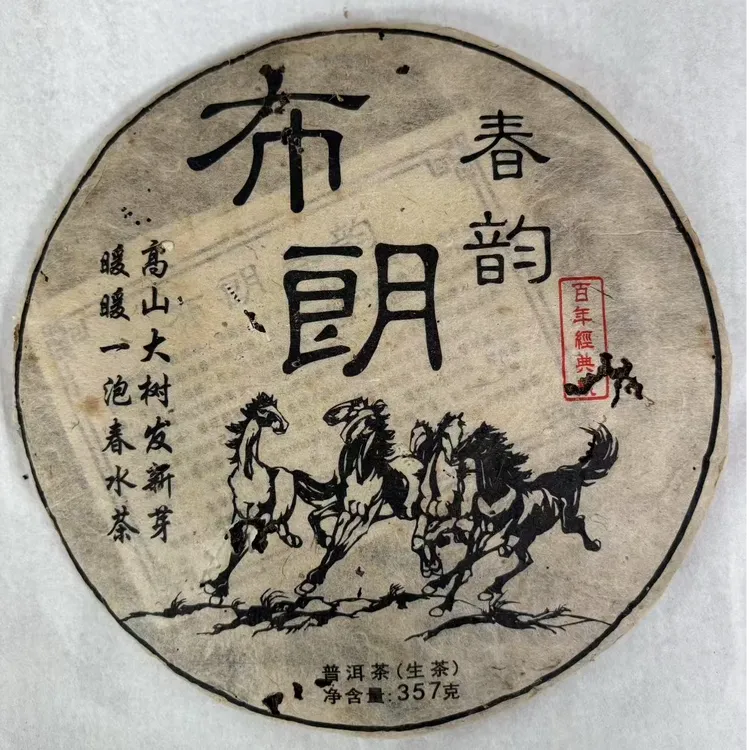 布朗
春韵
百年經典
高山大树发新芽
暖暖一泡春水茶
普洱茶(生茶)
净含量:357克